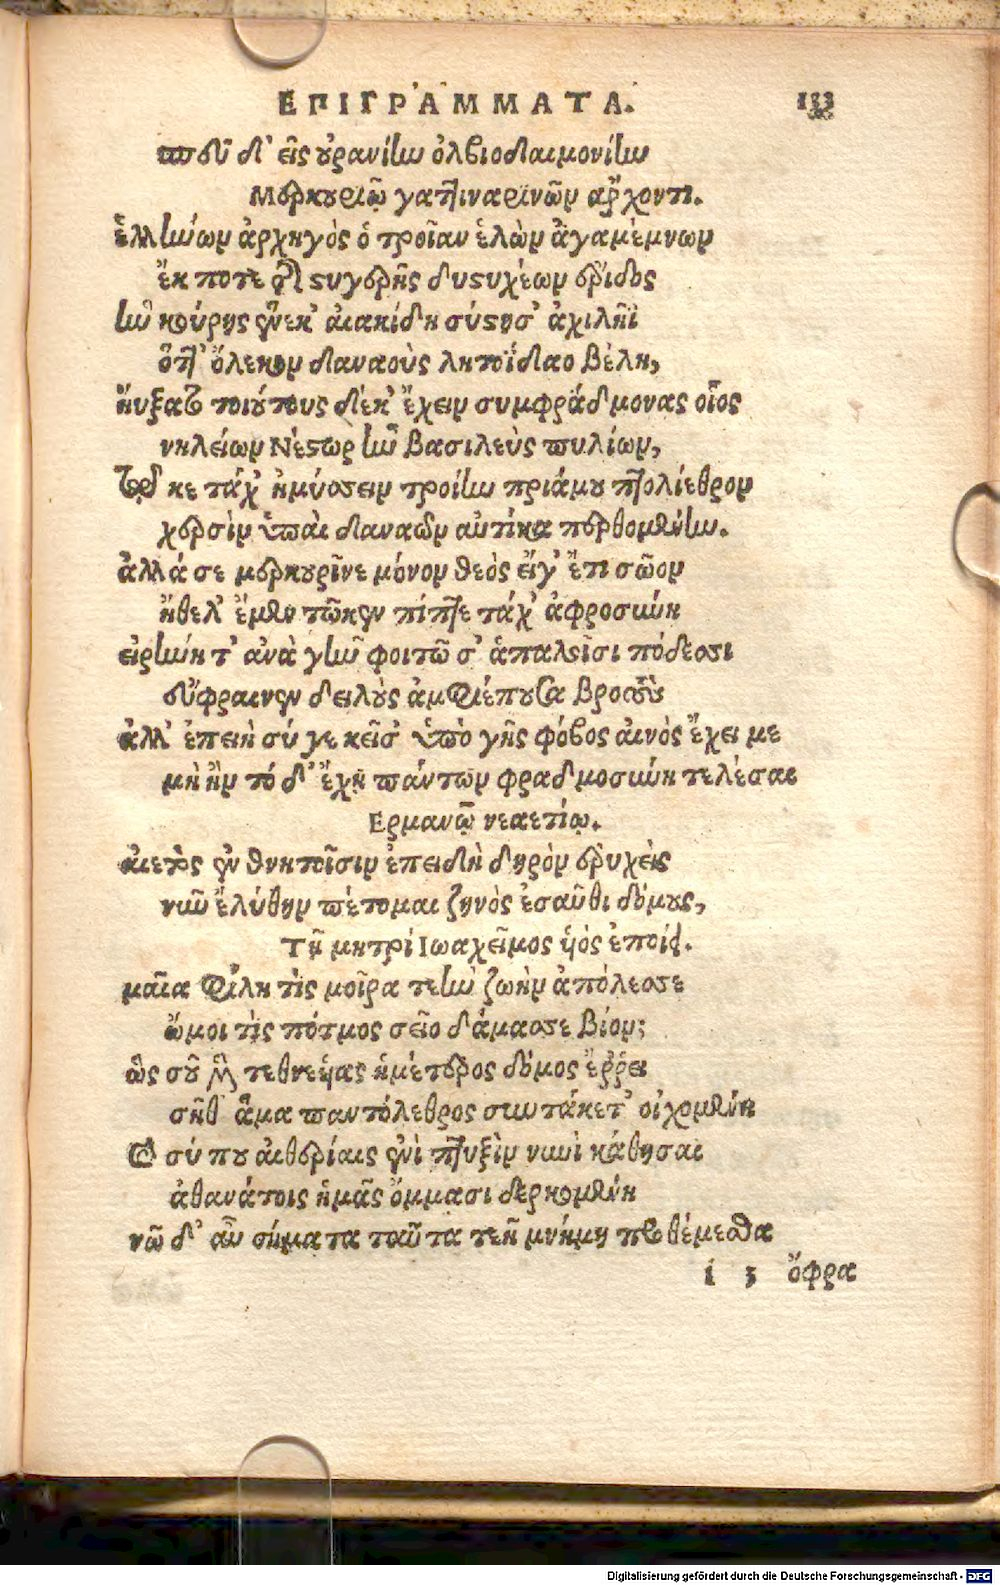 ΕΠΙΓΡΑΜΜΑΤΑ. 133
σπεῦ δ' εἰς οὐρανίην ὀλβιοδαιμονίην
Μερκουρίῳ γατ‌τιναρίνων ἄρχοντι.
ἑλλήνων ἀρχηγὸς ὁ τροίαν ἑλὼν ἀγαμέμνων
ἔκ ποτε τῆς στυγερῆς δυστυχέων ἔριδος
ἣν κούρης ἕνεκ' αἰακίδῃ σύστησ' ἀχιλῆϊ
ὅτ' ὄλεκον δαναοὺς λητοΐδαο βέλη,
ηὔξατο τοιούτους δέκ' ἔχειν συμφράδμονας οἷος
νηλείων Νέστωρ ἦν βασιλεὺς πυλίων,
τῷ κε τάχ' ἠμύσειν τροίην πριάμου πτολίεθρον
χερσὶν ὑπαὶ δαναῶν αὐτίκα περθομένην.
ἀλλά σε μερκουρῖνε μόνον θεὸς εἴγ' ἔτι σῶον
ἤθελ' ἔμεν τῶκεν πίπτε τάχ' ἀφροσύνη
εἰρήνη τ' ἀνὰ γῆν φοιτῶσ' ἁπαλοῖσι πόδεσσι
εὔφραινεν δειλοὺς ἀμφιέπουσα βροτοὺς
ἀλλ' ἐπειὴ σύ γε κεῖσ' ὑπὸ γῆς φόβος αἰνὸς ἔχει με
μὴ ἢν τό δ' ἔχῃ πάντων φραδμοσύνη τελέσαι
Ερμανῷ νεαετίῳ.
αἰετὸς ἐν θνητοῖσιν ἐπειδὴ δηρὸν ἐρυχεὶς
νῦν ἐλύθην πέτομαι ζηνὸς ἐσαῦθι δόμους,
Τῇ μητρί Ιωαχεῖμος ὑὸς ἐποίει.
μαῖα φίλη τὶς μοῖρα τεὴν ζωὴν ἀπόλεσσε
ὤμοι τὶς πότμος σεῖο δάμασσε βίον;
ὣς σοῦ μὲν τεθνεῄας ἡμέτερος δόμος ἔρῥει
σῆθ' ἅμα παντόλεθρος συντάκετ' οἰχομένη
καὶ σύ που αἰθερίαις ἐνὶ πτυξὶν νυνὶ κάθησαι
ἀθανάτοις ἡμᾶς ὄμμασι δερκομένη
νῶ δ' αὖ σήματα ταῦτα τεῇ μνήμῃ προθέμεσθα
i 3 ὄφρα
Digitalisierung gefördert durch die Deutsche Forschungsgemeinschaft - DFG